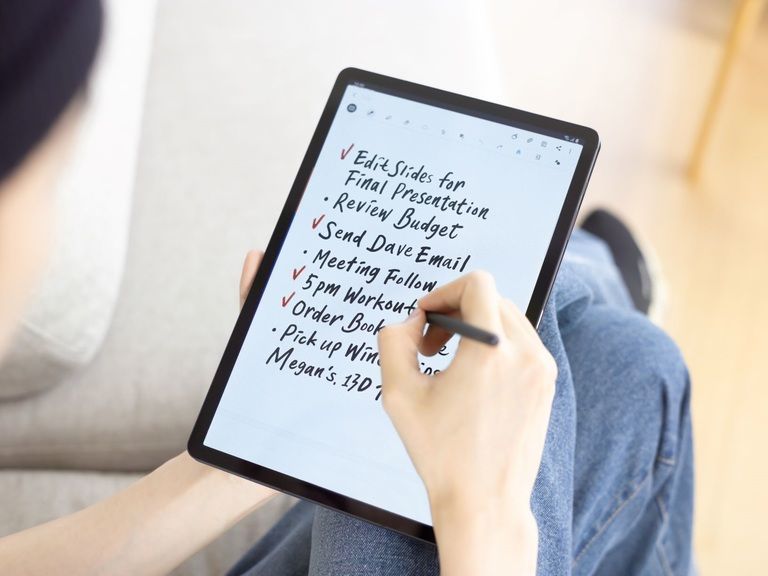 Edit Slides for
Final Presentation
Review Budget
Send Dave Email
Meeting Follow
5pm Workout
Order
Pick up
Megan's, 13D